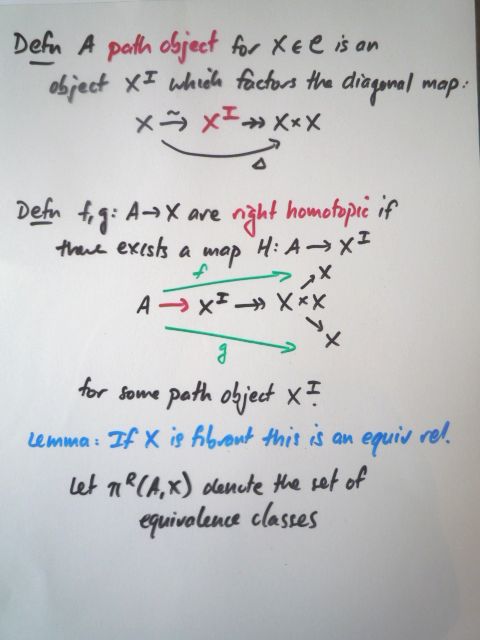 Defn A path object for X ∈ C is an
object X^I which factors the diagonal map:
X ~→ X^I ↠ X×X
Δ
Defn f,g: A→X are right homotopic if
there exists a map H: A → X^I
f
X
A → X^I ↠ X×X
X
g
for some path object X^I.
Lemma: If X is fibrant this is an equiv rel.
Let π^R(A,X) denote the set of
equivalence classes